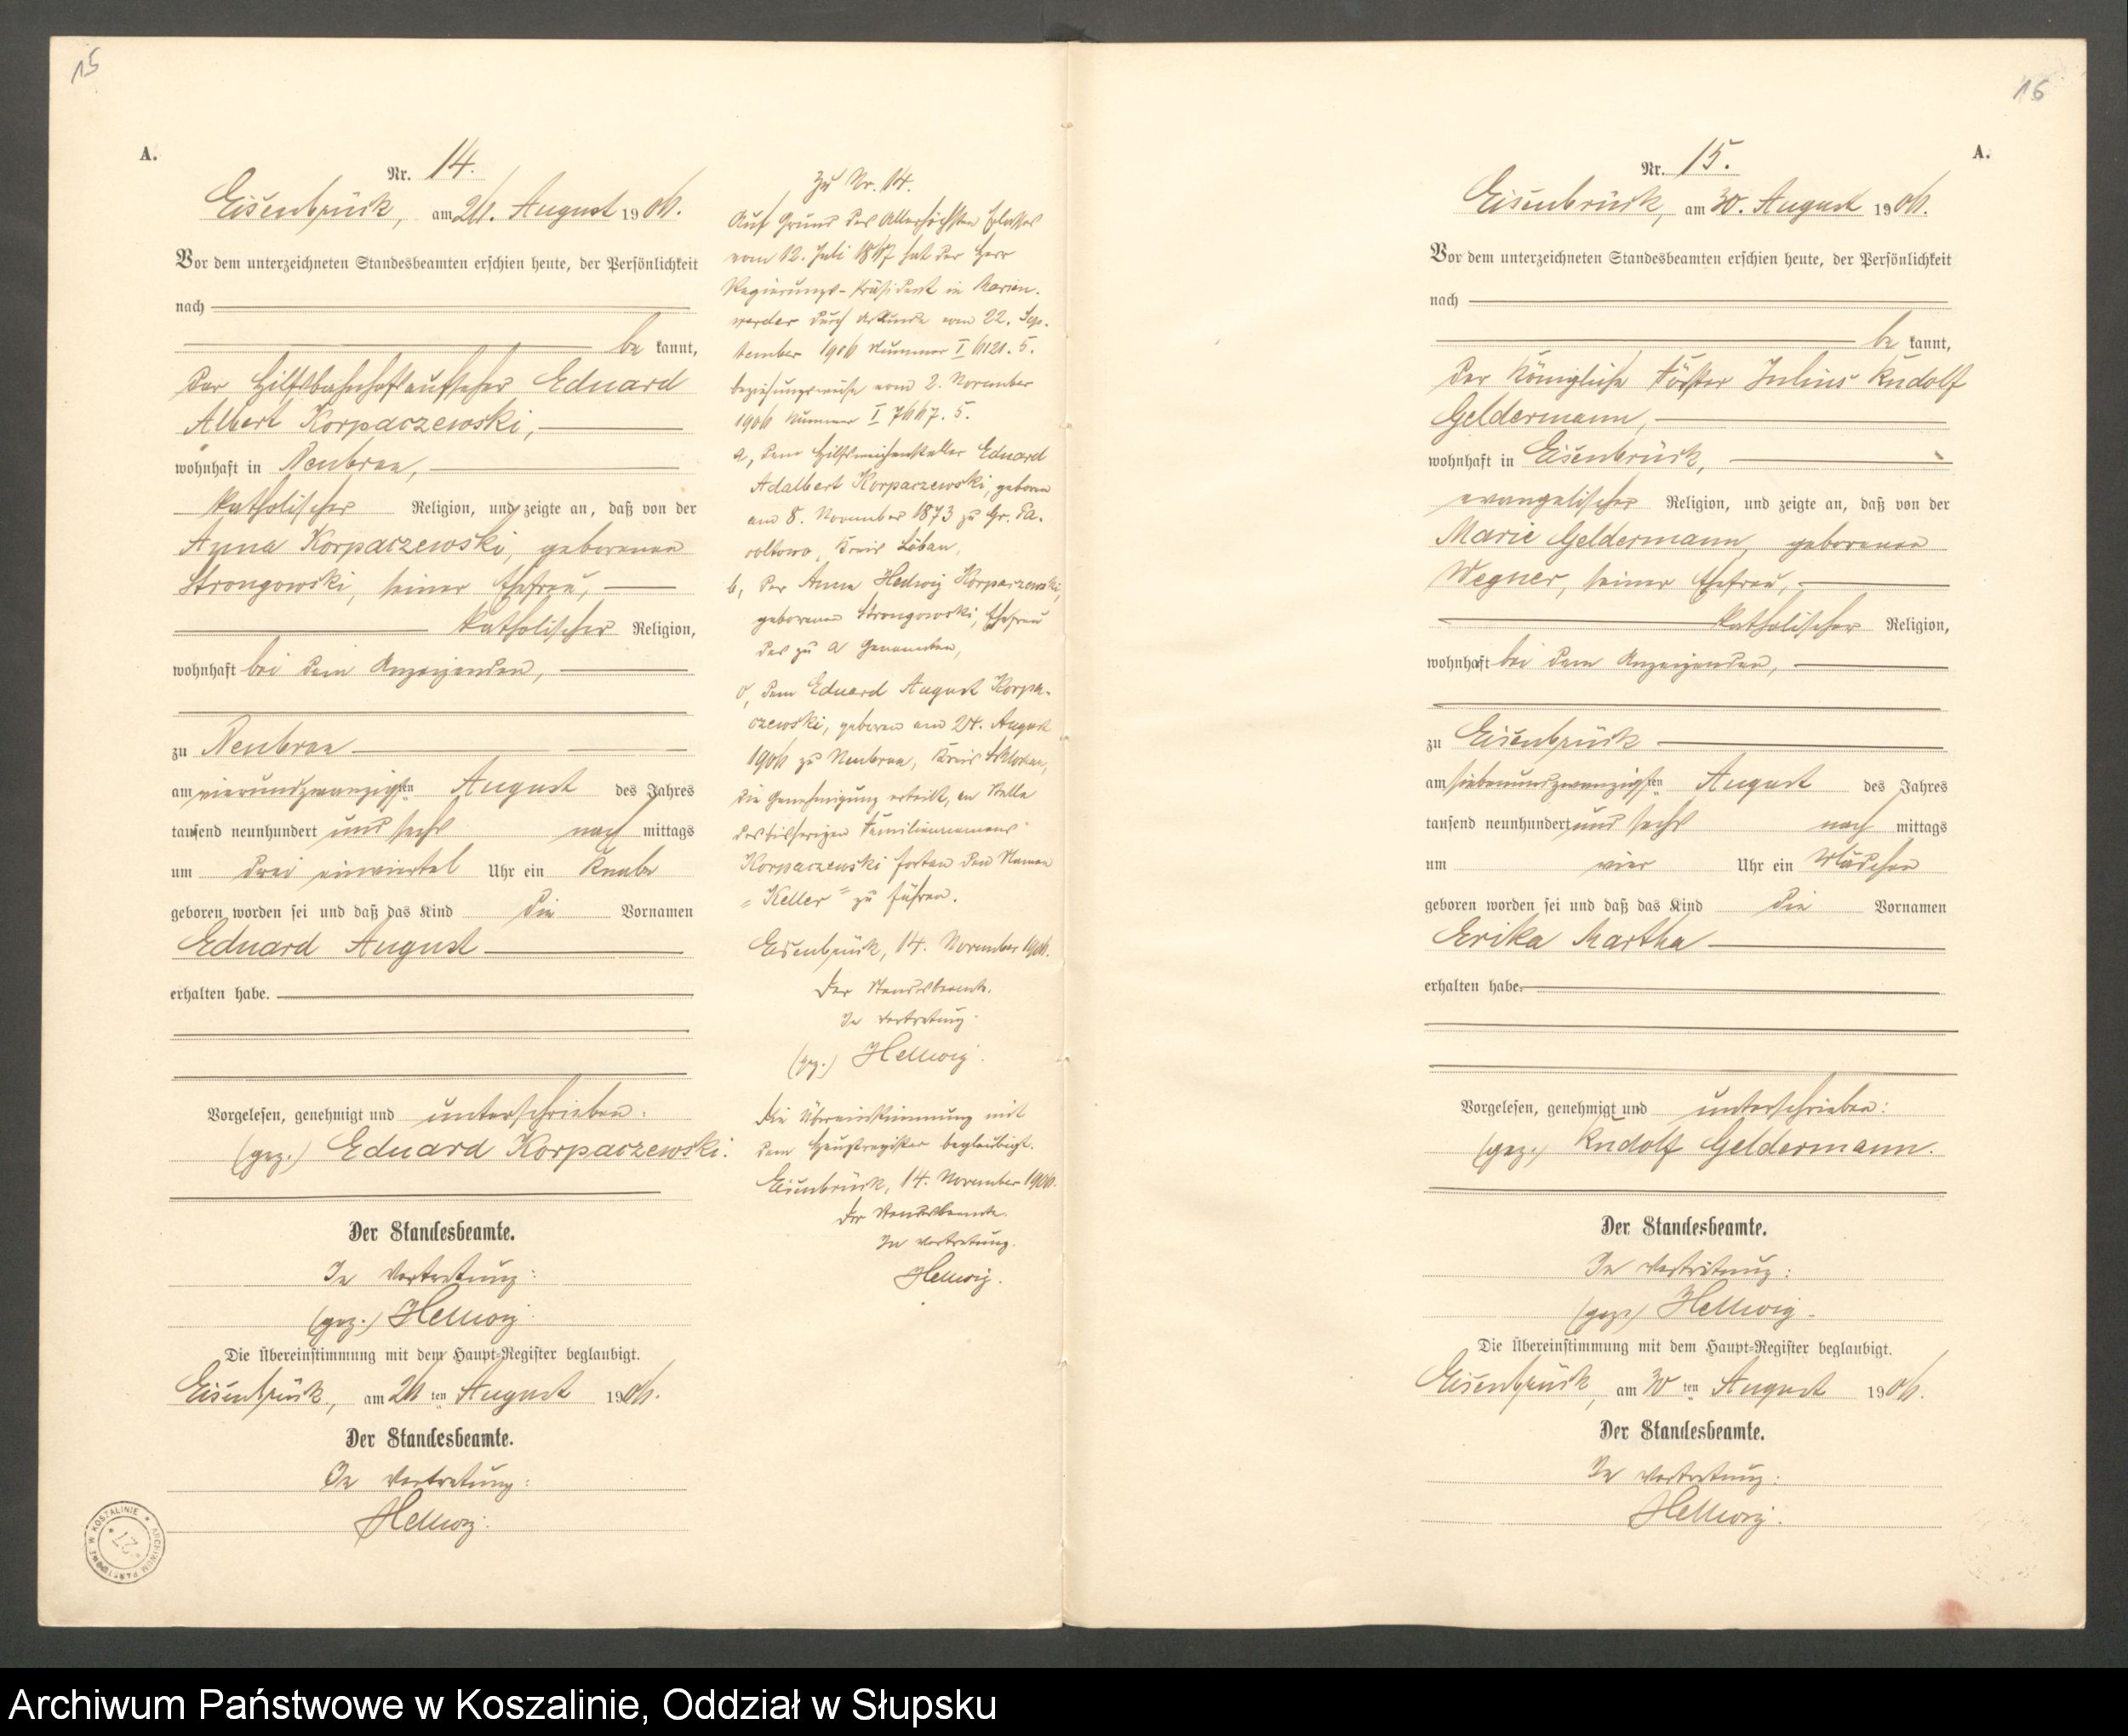 15
A.
Nr. 14.
Eisenbrück, am 26. August 1906.
Vor dem unterzeichneten Standesbeamten erschien heute, der Persönlichkeit
nach
be kannt,
der Hilfsbahnhofsaufseher Eduard
Albert Korpaczewski,
wohnhaft in Neubraa,
katholischer Religion, und zeigte an, daß von der
Anna Korpaczewski, geborenen
Strongowski, seiner Ehefrau,
katholischer Religion,
wohnhaft bei dem Anzeigenden,
zu Neubraa
am vierundzwanzigsten August des Jahres
tausend neunhundert und sechs nach mittags
um drei einviertel Uhr ein Knabe
geboren worden sei und daß das Kind die Vornamen
Eduard August
erhalten habe.
Vorgelesen, genehmigt und unterschrieben.
(gez.) Eduard Korpaczewski.
Der Standesbeamte.
In Vertretung:
(gez.) Hellwig.
Die Übereinstimmung mit dem Haupt-Register beglaubigt.
Eisenbrück, am 26ten August 1906.
Der Standesbeamte.
In Vertretung:
Hellwig.
Zu Nr. 14.
Auf Grund des Allerhöchsten Erlasses
vom 12. Juli 1867 hat der Herr
Regierungs-Präsident in Marien-
werder durch Urkunde vom 22. Sep-
tember 1906 Nummer I 6121. 5.
beziehungsweise vom 2. November
1906 Nummer I 7667. 5.
a, dem Hilfsweichensteller Eduard
Adalbert Korpaczewski, geboren
am 8. November 1873 zu Gr.
Kreis Löbau,
b, der Anna Hedwig Korpaczewski,
geborenen Strongowski, Ehefrau
des zu a Genannten,
c, dem Eduard August Korpa-
czewski, geboren am 24. August
1906 zu Neubraa, Kreis Schlochau,
die Genehmigung erteilt, an Stelle
des bisherigen Familiennamens
Korpaczewski fortan den Namen
„Keller" zu führen.
Eisenbrück, 14. November 1906.
Der Standesbeamte.
In Vertretung.
(gez.) Hellwig.
Die Übereinstimmung mit
dem Hauptregister beglaubigt.
Eisenbrück, 14. November 1906.
Der Standesbeamte.
In Vertretung.
Hellwig.
ARCHIWUM PAŃSTWOWE W KOSZALINIE
27
16
A.
Nr. 15.
Eisenbrück, am 30. August 1906.
Vor dem unterzeichneten Standesbeamten erschien heute, der Persönlichkeit
nach
be kannt,
der Königliche Förster Julius Rudolf
Geldermann,
wohnhaft in Eisenbrück,
evangelischer Religion, und zeigte an, daß von der
Marie Geldermann, geborenen
Wegner, seiner Ehefrau,
katholischer Religion,
wohnhaft bei dem Anzeigenden,
zu Eisenbrück
am siebenundzwanzigsten August des Jahres
tausend neunhundert und sechs nach mittags
um vier Uhr ein Mädchen
geboren worden sei und daß das Kind die Vornamen
Erika Martha
erhalten habe.
Vorgelesen, genehmigt und unterschrieben:
(gez.) Rudolf Geldermann.
Der Standesbeamte.
In Vertretung:
(gez.) Hellwig.
Die Übereinstimmung mit dem Haupt-Register beglaubigt.
Eisenbrück, am 30ten August 1906.
Der Standesbeamte.
In Vertretung:
Hellwig.
Archiwum Państwowe w Koszalinie, Oddział w Słupsku